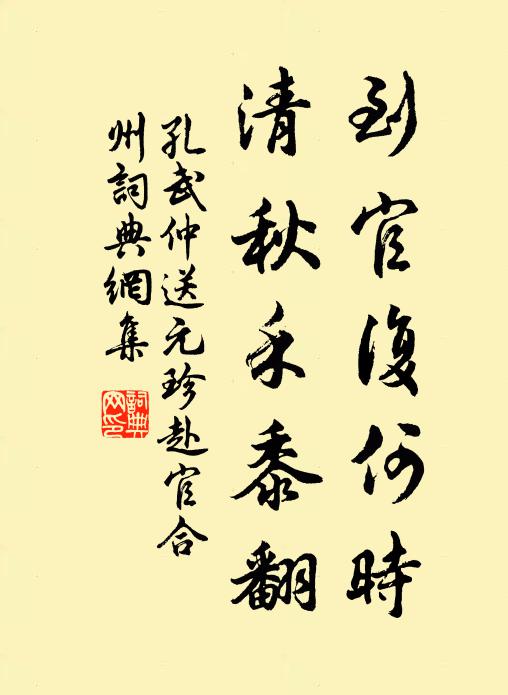 到官復何時
清秋禾黍翻
孔武仲送元珍赴官合
州詞典網集
詞典
网印